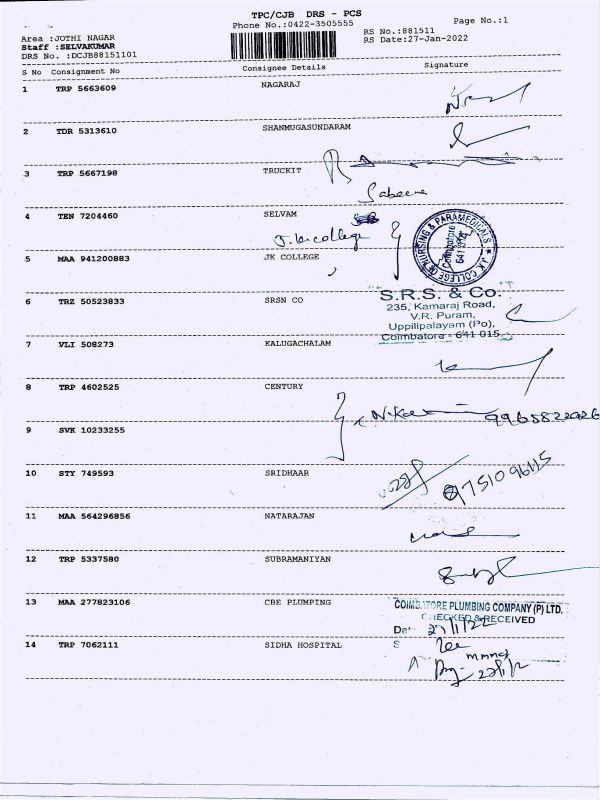 TPC/CJB DRS - PCS
Phone No.:0422-3505555
Page No.:1
Area :JOTHI NAGAR
Staff :SELVAKUMAR
DRS No. :DCJB88151101
RS No.:881511
RS Date:27-Jan-2022
S No Consignment No Consignee Details Signature
1 TRP 5663609 NAGARAJ
2 TDR 5313610 SHANMUGASUNDARAM
3 TRP 5667198 TRUCKIT
Sabeena
4 TEN 7204460 SELVAM
J.k college
J.K. COLLEGE OF NURSING & PARAMEDICALS
Coimbatore
5 MAA 941200883 JK COLLEGE
6 TRZ 50523833 SRSN CO
S.R.S. & Co.
235, Kamaraj Road,
V.R. Puram,
Uppilipalayam (Po),
Coimbatore - 641 015.
7 VLI 508273 KALUGACHALAM
8 TRP 4602525 CENTURY
9 SVK 10233255
10 STY 749593 SRIDHAAR
11 MAA 564296856 NATARAJAN
12 TRP 5337580 SUBRAMANIYAN
13 MAA 277823106 CBE PLUMPING
COIMBATORE PLUMBING COMPANY (P) LTD.
CHECKED & RECEIVED
27/1/22
14 TRP 7062111 SIDHA HOSPITAL